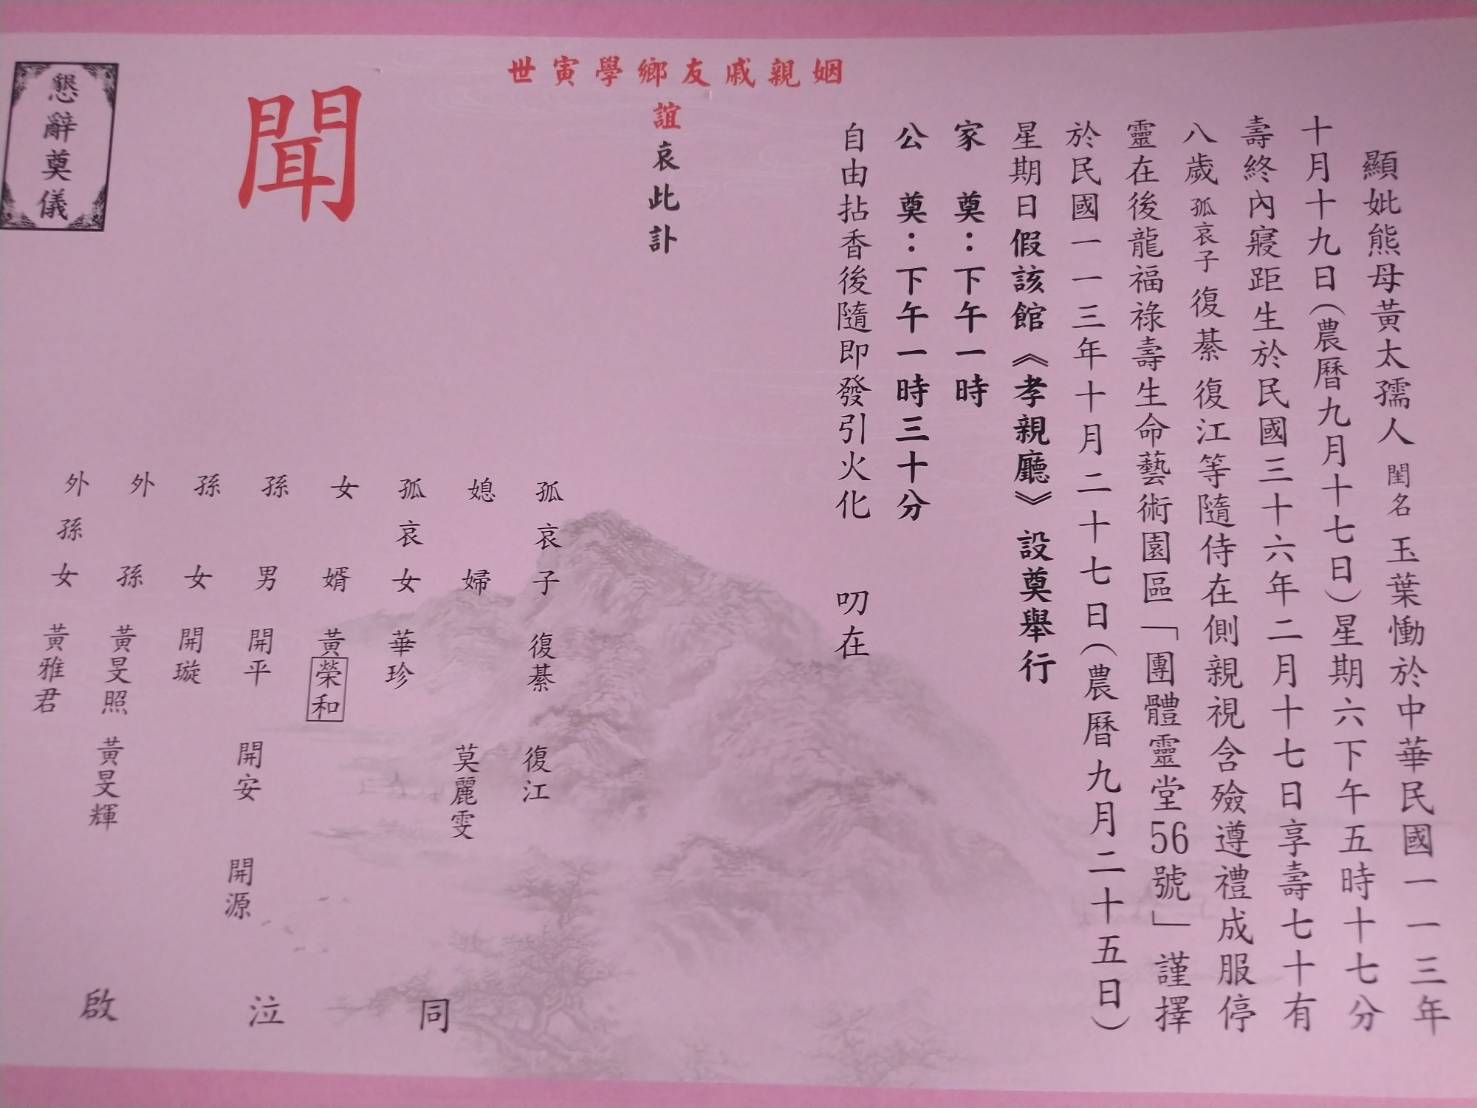 顯妣熊母黃太孺人 閨名 玉葉慟於中華民國一一三年
十月十九日(農曆九月十七日)星期六下午五時十七分
壽終內寢距生於民國三十六年二月十七日享壽七十有
八歲 孤哀子 復綦 復江等隨侍在側親視含殮遵禮成服停
靈在後龍福祿壽生命藝術園區「團體靈堂56號」謹擇
於民國一一三年十月二十七日(農曆九月二十五日)
星期日假該館《孝親廳》設奠舉行
家奠：下午一時
公奠：下午一時三十分
自由拈香後隨即發引火化 叨在
姻親戚友鄉學寅世
誼哀此訃
聞
孤哀子 復綦 復江
媳婦 莫麗雯
孤哀女 華珍
女婿 黃榮和
孫男 開平 開安 開源
孫女 開璇
外孫 黃旻照 黃旻輝
外孫女 黃雅君
同泣啟
懇辭奠儀